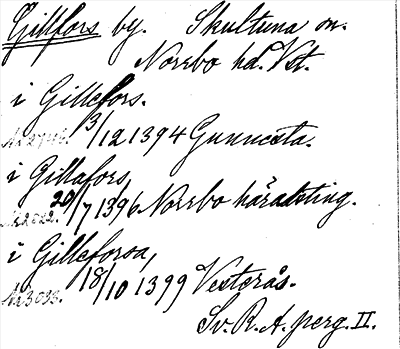 Gillfors by. Skultuna sn.
Norrbo hd. Vst.
i Gillefors.
3/12 1394 Gunnresta.
i Gillafors,
20/7 1396. Norrbo häradsting.
Nr 2022.
i Gilleforsa,
18/10 1399 Vesterås.
Nr 3033.
Sv. R. A. perg. II.